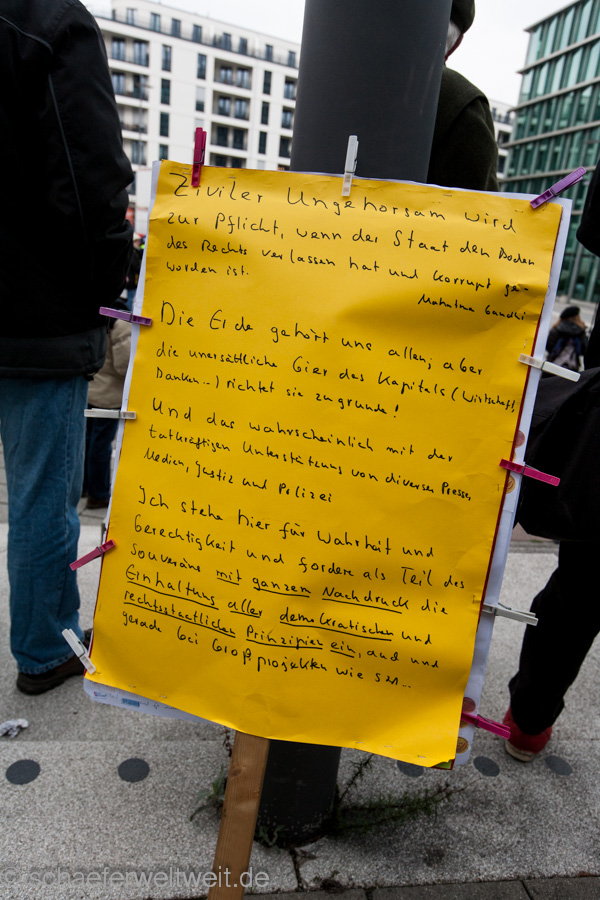 Ziviler Ungehorsam wird
zur Pflicht, wenn der Staat den Boden
des Rechts verlassen hat und korrupt ge-
worden ist.
Mahatma Gandhi
Die Erde gehört uns allen; aber
die unersättliche Gier des Kapitals (Wirtschaft,
Banken...) richtet sie zugrunde!
Und das wahrscheinlich mit der
tatkräftigen Unterstützung von diversen Presse,
Medien, Justiz und Polizei
Ich stehe hier für Wahrheit und
Gerechtigkeit und fordere als Teil des
Souveräns mit ganzem Nachdruck die
Einhaltung aller demokratischen und
rechtsstaatlichen Prinzipien ein, auch und
gerade bei Großprojekten wie S21...
© schaeferweltweit.de